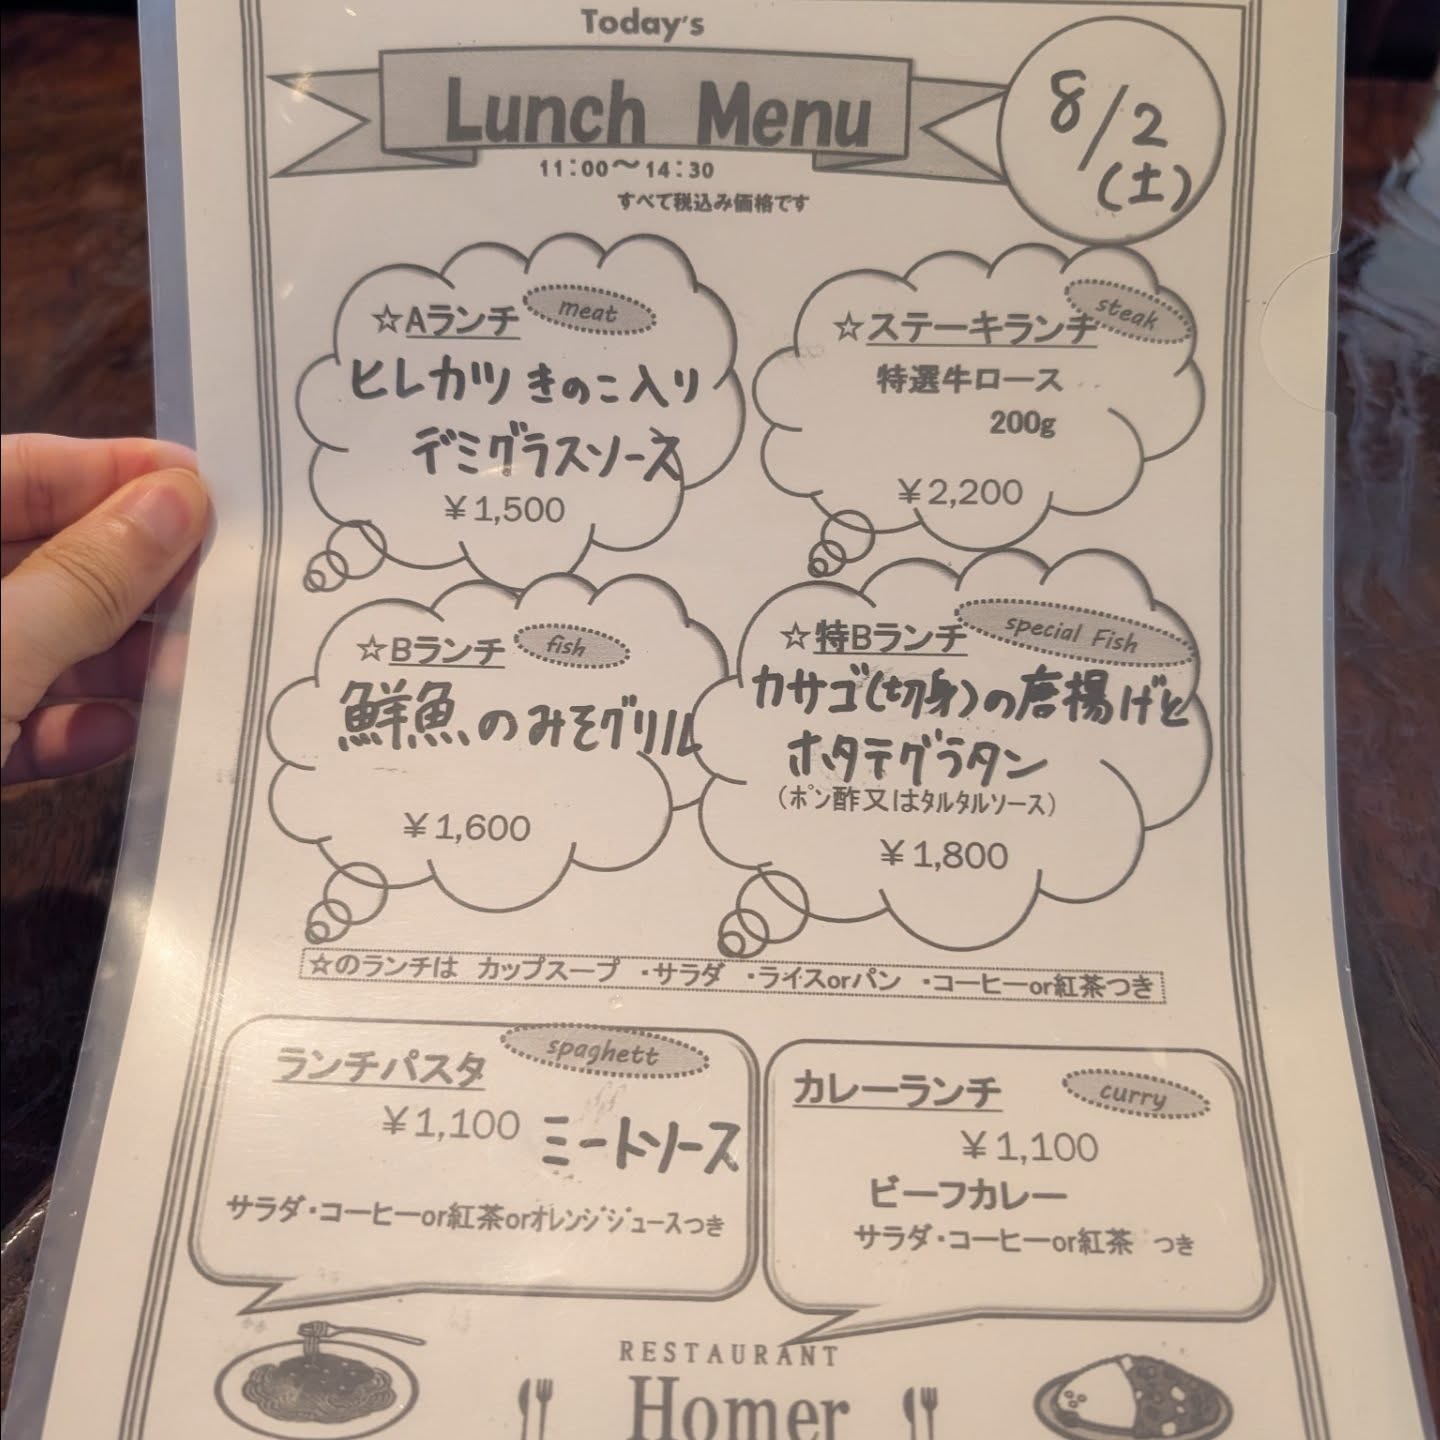 Today's
Lunch Menu
11:00～14:30
すべて税込み価格です
8/2
(土)
☆Aランチ meat
ヒレカツきのこ入り
デミグラスソース
￥1,500
☆ステーキランチ steak
特選牛ロース
200g
￥2,200
☆Bランチ fish
鮮魚のみそグリル
￥1,600
☆特Bランチ special Fish
カサゴ(切身)の唐揚げと
ホタテグラタン
(ポン酢又はタルタルソース)
￥1,800
☆のランチは カップスープ ・サラダ ・ライスorパン ・コーヒーor紅茶つき
ランチパスタ spaghett
￥1,100 ミートソース
サラダ・コーヒーor紅茶orオレンジジュースつき
カレーランチ curry
￥1,100
ビーフカレー
サラダ・コーヒーor紅茶 つき
RESTAURANT
Homer